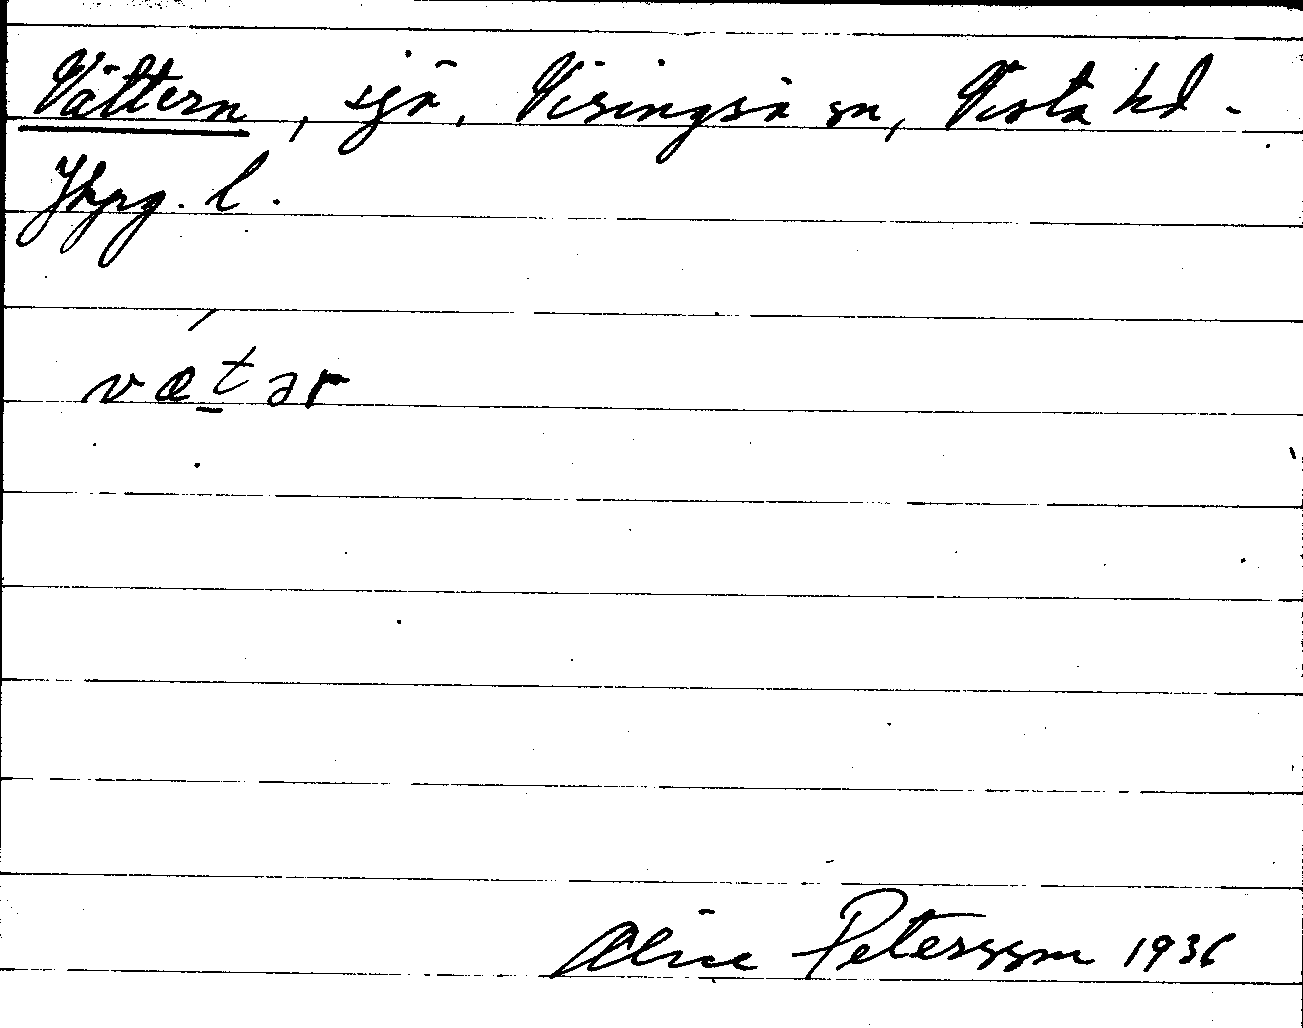 Vättern, sjö, Visingsö sn, Vista hd.
Jkpg. l.
vǽt̲ər
Alice Petersson 1936